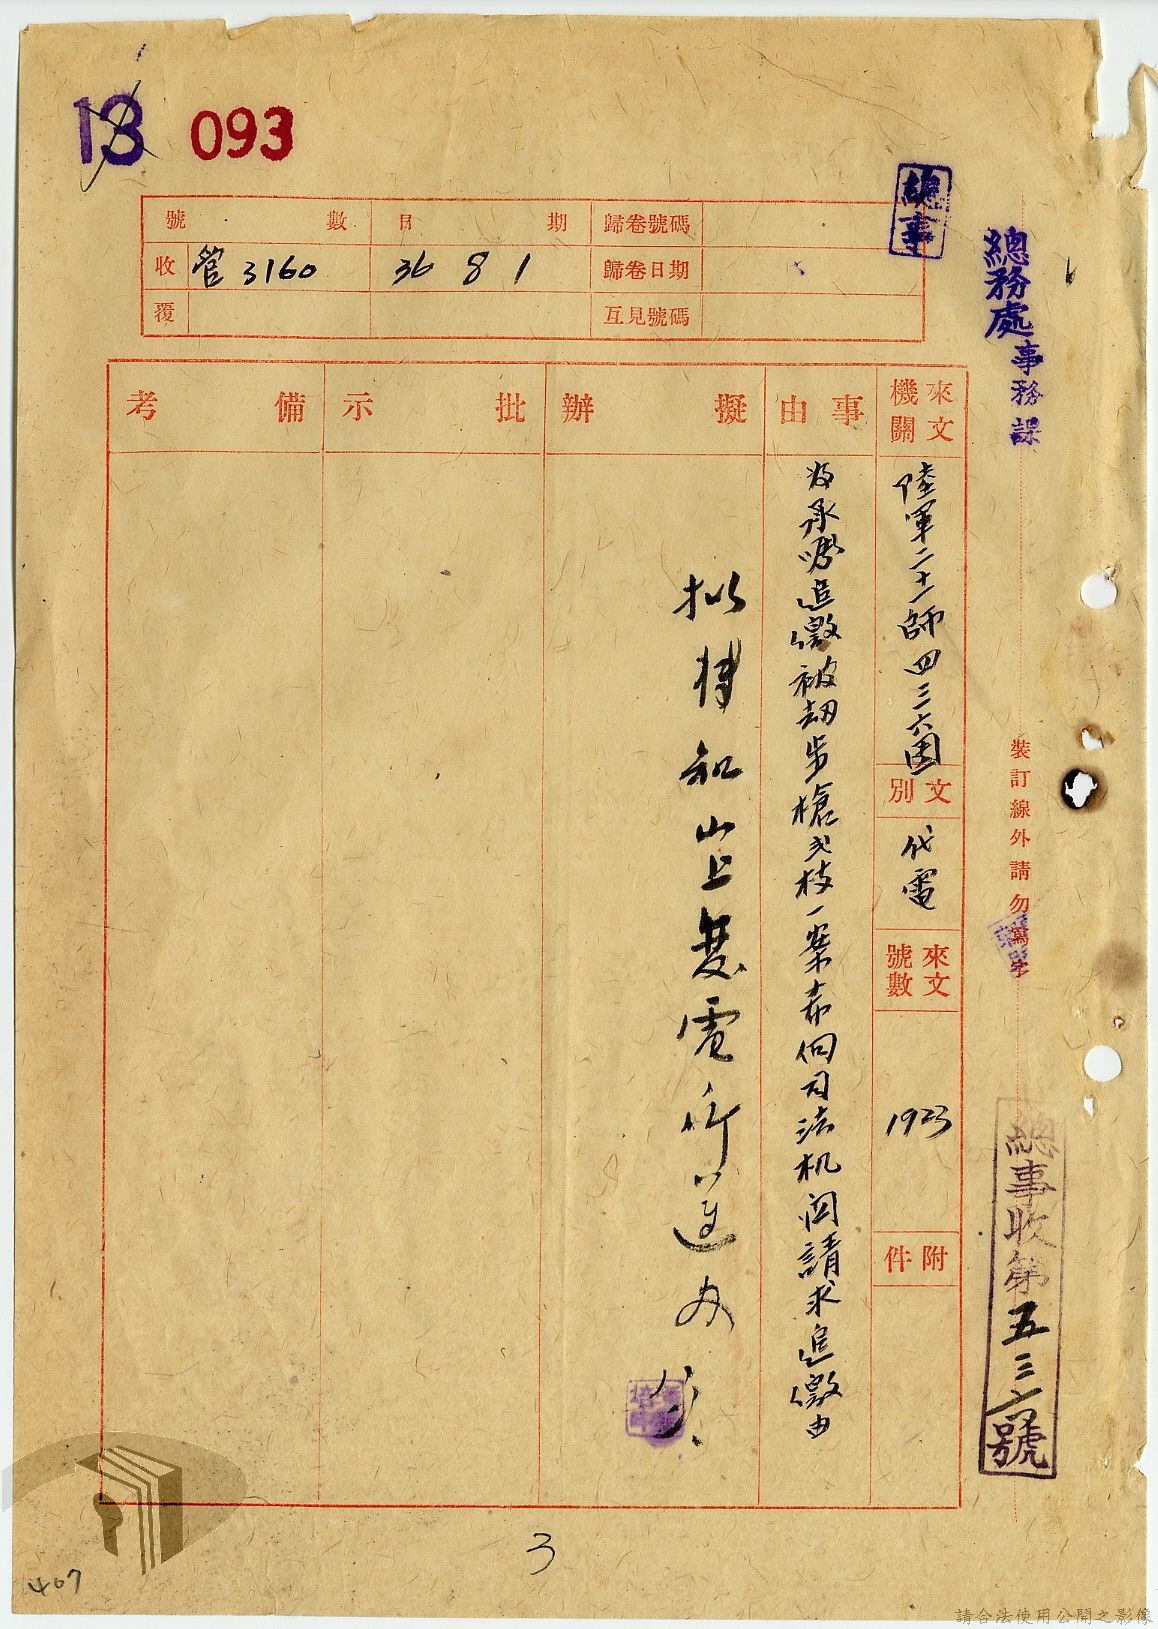 13
093
號數 日期 歸卷號碼
收 管 3160 36 8 1 歸卷日期
覆 互見號碼
總事
總務處事務課
來文機關
陸軍二十一師四三六團
文別
代電
來文號數
1923
附件
事由
為承囑追繳被劫步槍弍枝一案希向司法机関請求追繳由
擬辦
批示
備考
裝訂線外請勿寫字
總事收第五三六號
3
407
請合法使用公開之影像